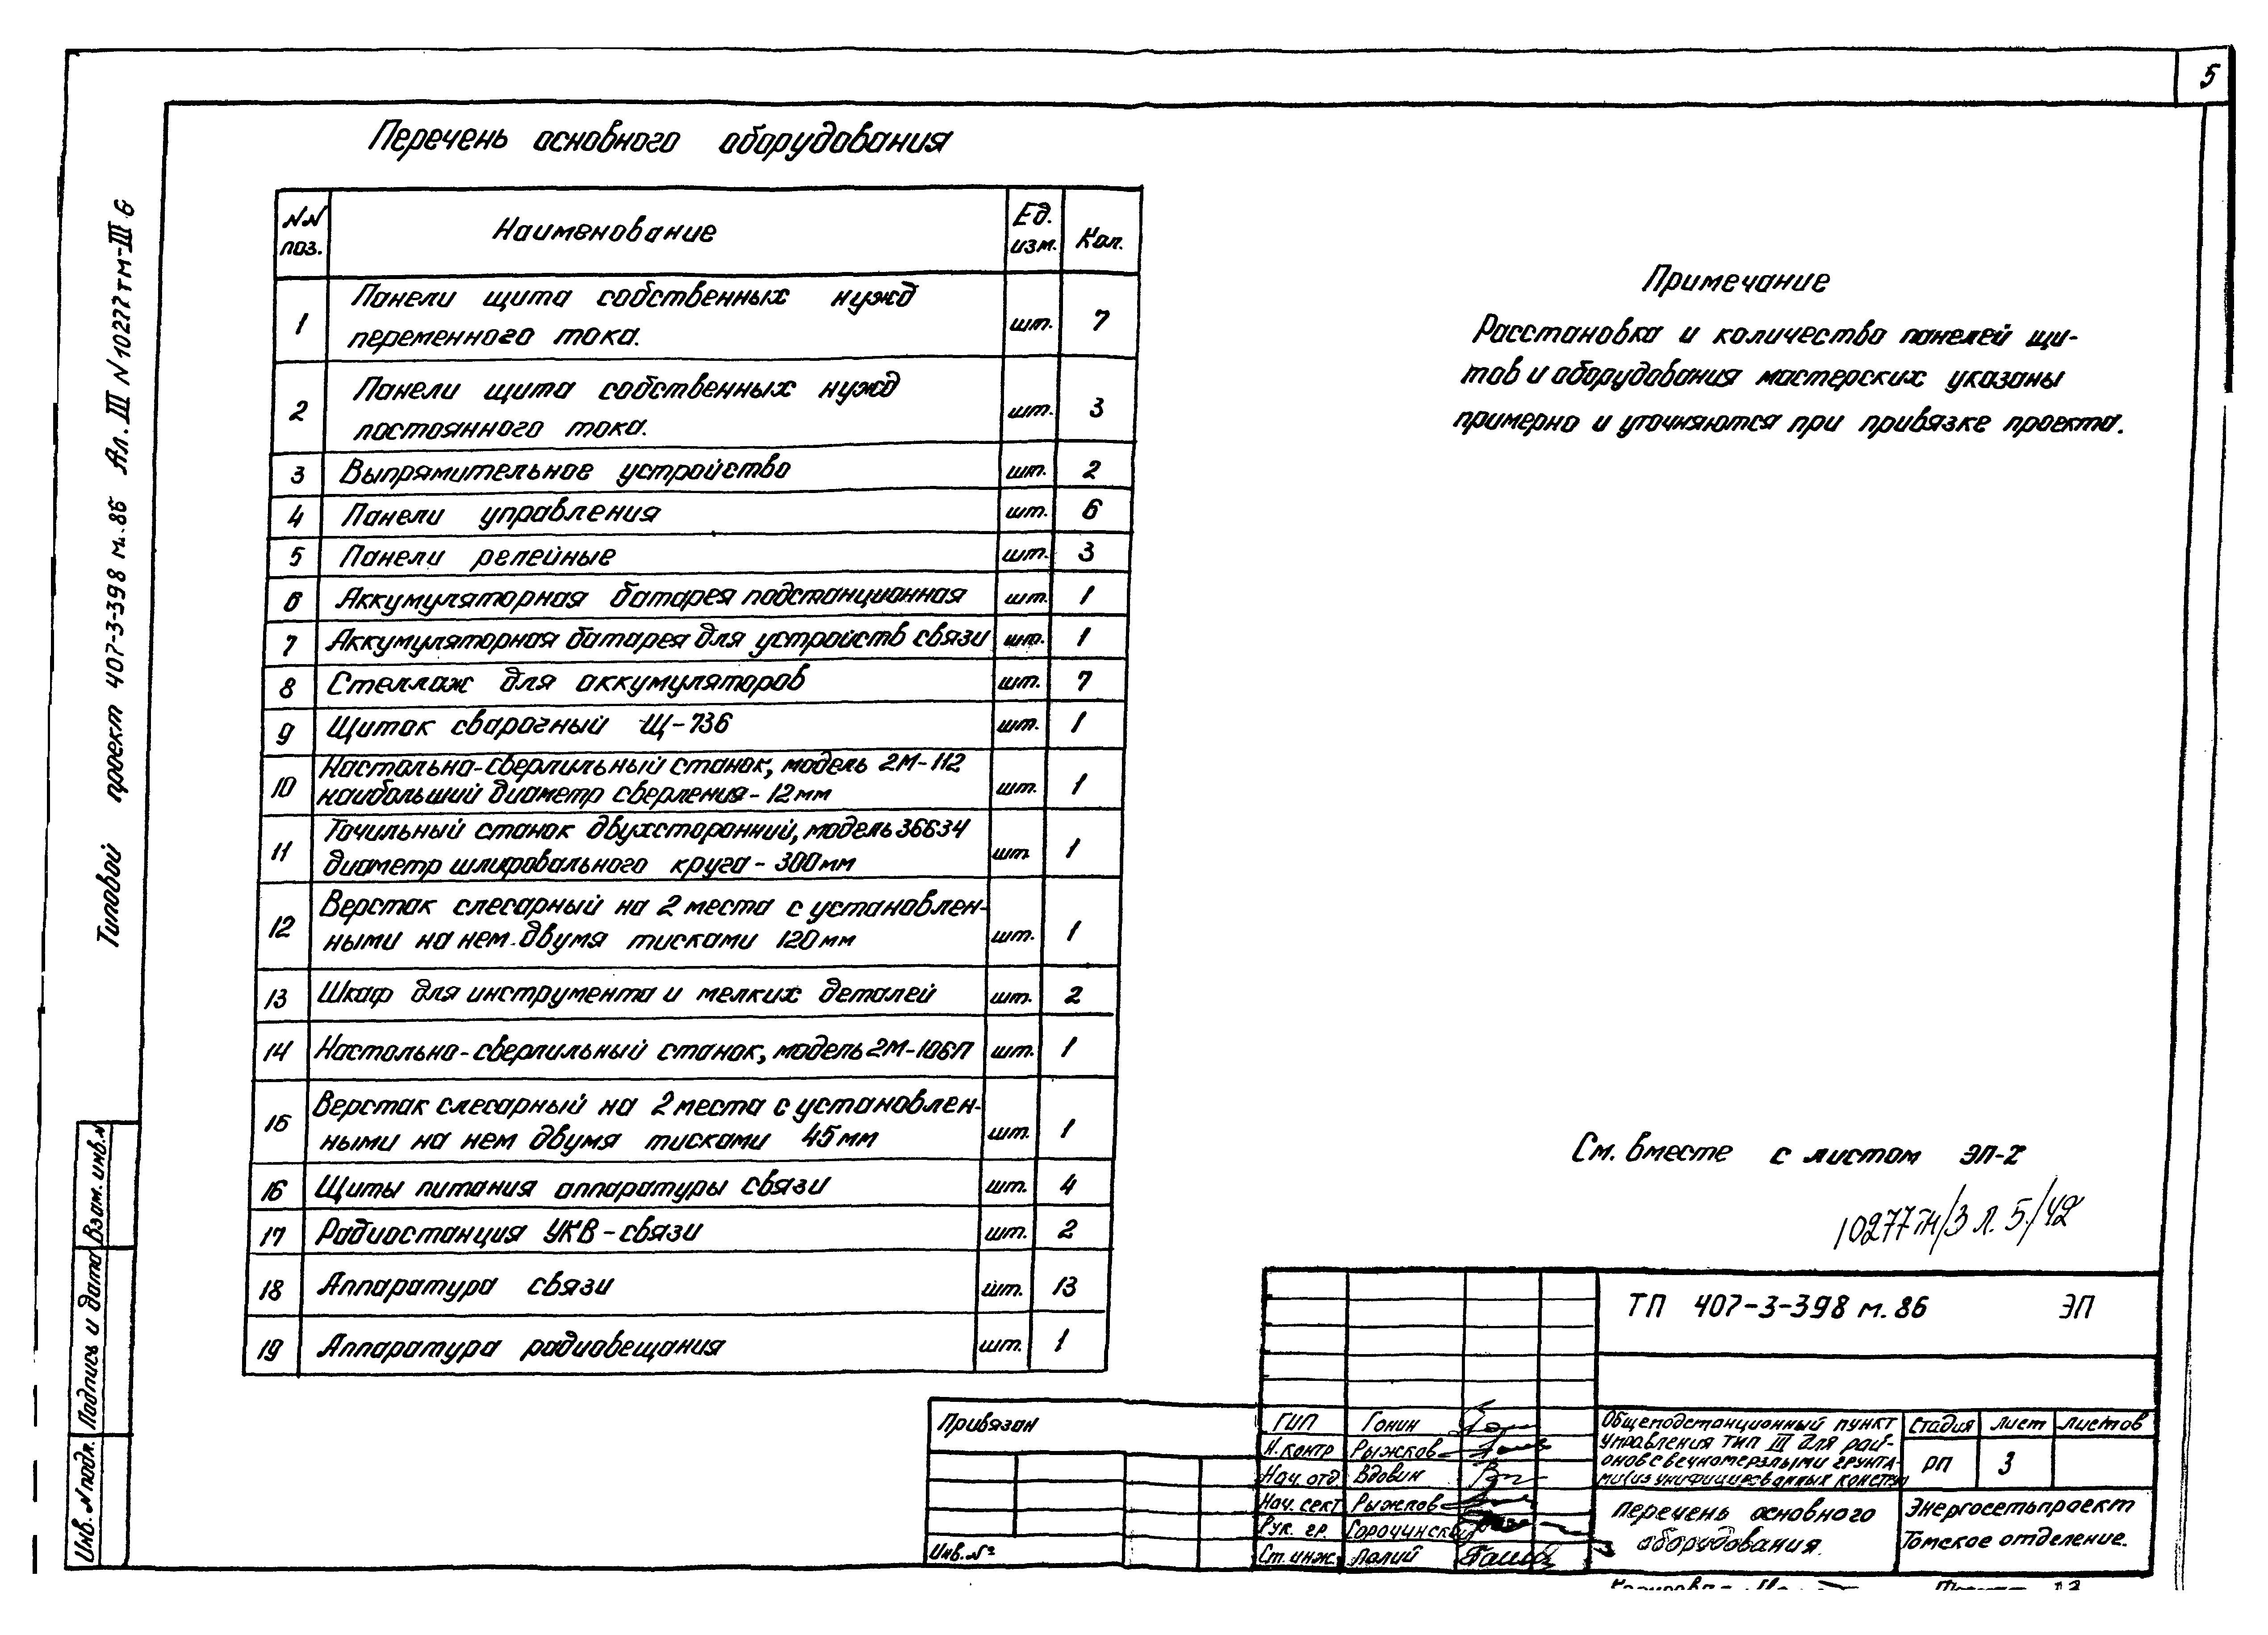 5
Типовой проект 407-3-398 м.86 Ал. III N 10277тм-III 6
Перечень основного оборудования
NN поз. Наименование Ед. изм. Кол.
1 Панели щита собственных нужд
переменного тока. шт. 7
2 Панели щита собственных нужд
постоянного тока. шт. 3
3 Выпрямительное устройство шт. 2
4 Панели управления шт. 6
5 Панели релейные шт. 3
6 Аккумуляторная батарея подстанционная шт. 1
7 Аккумуляторная батарея для устройств связи шт. 1
8 Стеллаж для аккумуляторов шт. 7
9 Щиток сварочный Щ-736 шт. 1
10 Настольно-сверлильный станок, модель 2М-112
наибольший диаметр сверления - 12мм шт. 1
11 Точильный станок двухсторонний, модель 3Б634
диаметр шлифовального круга - 300мм шт. 1
12 Верстак слесарный на 2 места с установлен-
ными на нем двумя тисками 120мм шт. 1
13 Шкаф для инструмента и мелких деталей шт. 2
14 Настольно-сверлильный станок, модель 2М-106П шт. 1
15 Верстак слесарный на 2 места с установлен-
ными на нем двумя тисками 45мм шт. 1
16 Щиты питания аппаратуры связи шт. 4
17 Радиостанция УКВ-связи шт. 2
18 Аппаратура связи шт. 13
19 Аппаратура радиовещания шт. 1
Примечание
Расстановка и количество панелей щи-
тов и оборудования мастерских указаны
примерно и уточняются при привязке проекта.
См. вместе с листом ЭП-2
10277тм/3 л. 5/42
ТП 407-3-398 м.86 ЭП
Привязан
Инв. №
ГИП Гонин
Н. контр Рыжков
Нач. отд. Вдовин
Нач. сект Рыжков
Рук. гр.
Ст. инж. Палий
Общеподстанционный пункт
управления тип III для рай-
онов с вечномерзлыми грунта-
ми (из унифицированных констру
Стадия Лист Листов
РП 3
Перечень основного
оборудования.
Энергосетьпроект
Томское отделение.
Взам. инв. N
Подпись и дата
Инв. N подл.